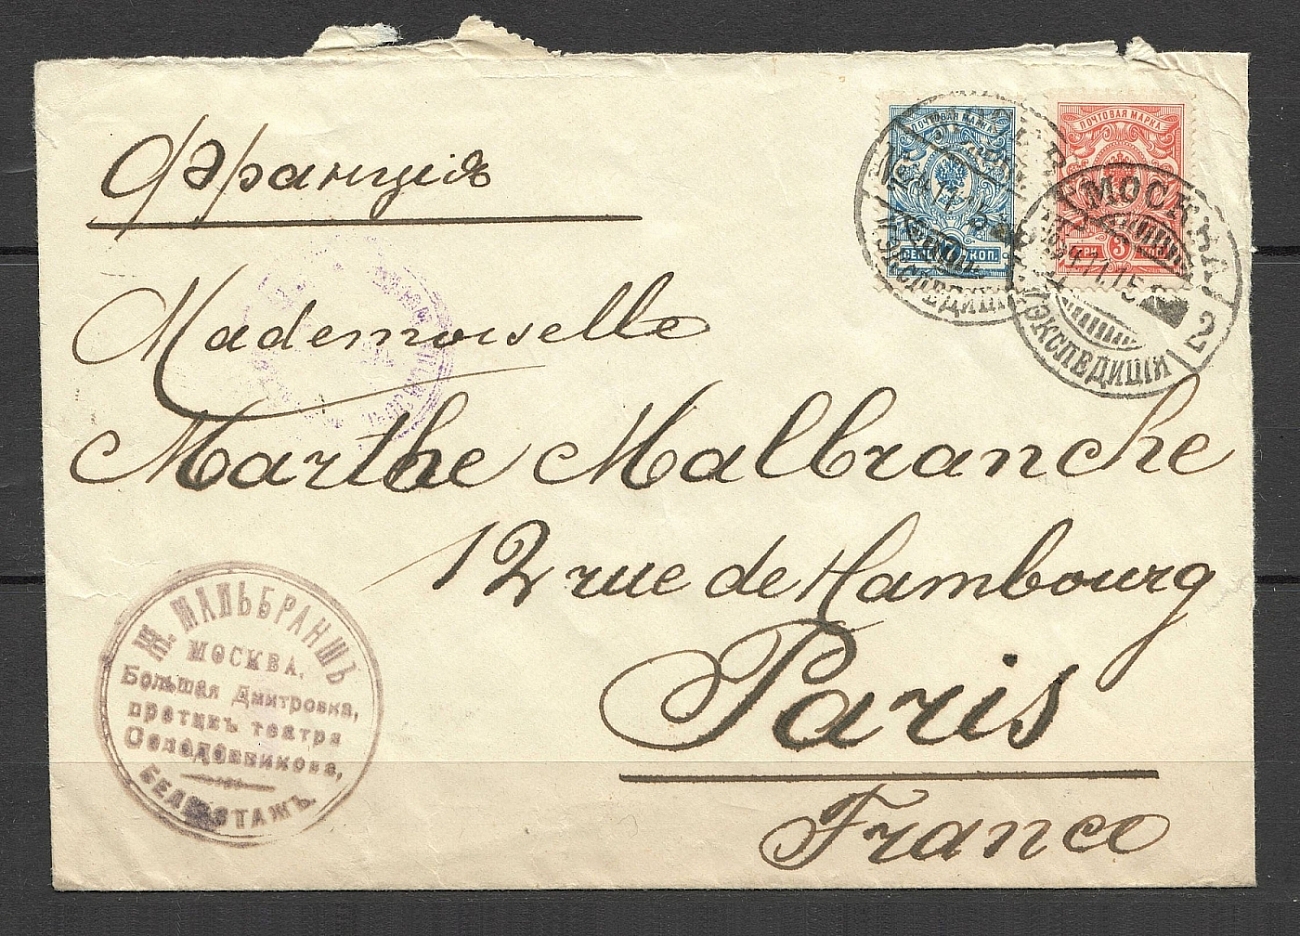 Франція
Mademoiselle
Marthe Malbranche
12 rue de Hambourg
Paris
France
ПОЧТОВАЯ МАРКА
7 КОП.
ПОЧТОВАЯ МАРКА
ТРИ 3 КОП.
МОСКВА
2
ЭКСПЕДИЦІИ
Ж. МАЛЬБРАНШЪ
МОСКВА.
Большая Дмитровка,
противъ театра
Солодовникова,
БЕЛЬ-ЭТАЖЪ